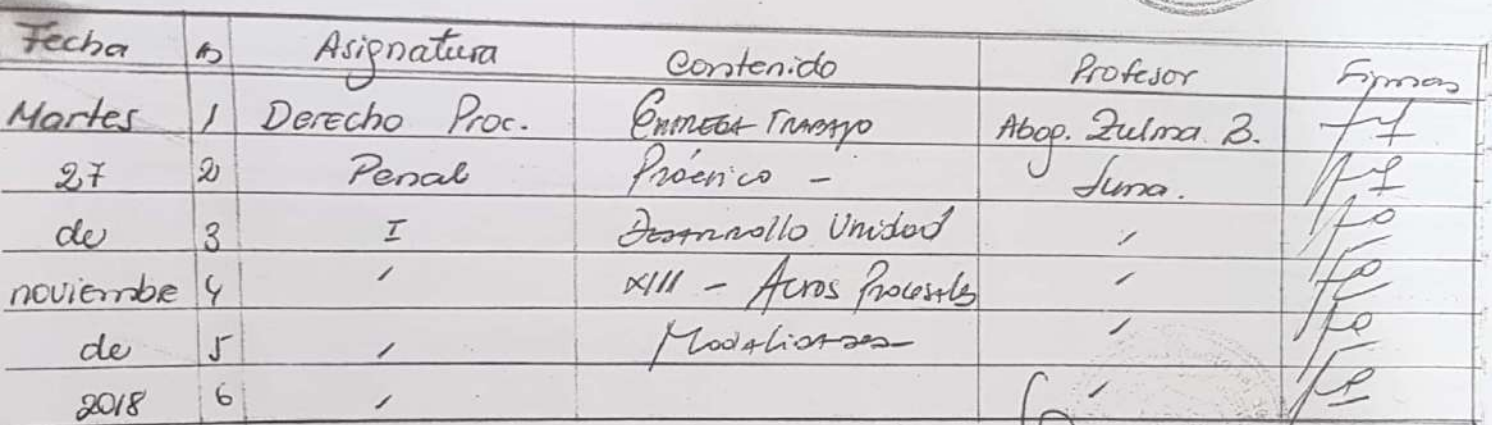 Fecha Asignatura Contenido Profesor Firmas
Martes 1 Derecho Proc. Entrega Trabajo Abog. Zulma B.
27 2 Penal Práctico - Luna.
de 3 I Desarrollo Unidad "
noviembre 4 " XIII - Actos Procesales "
de 5 " Modalidades "
2018 6 " "